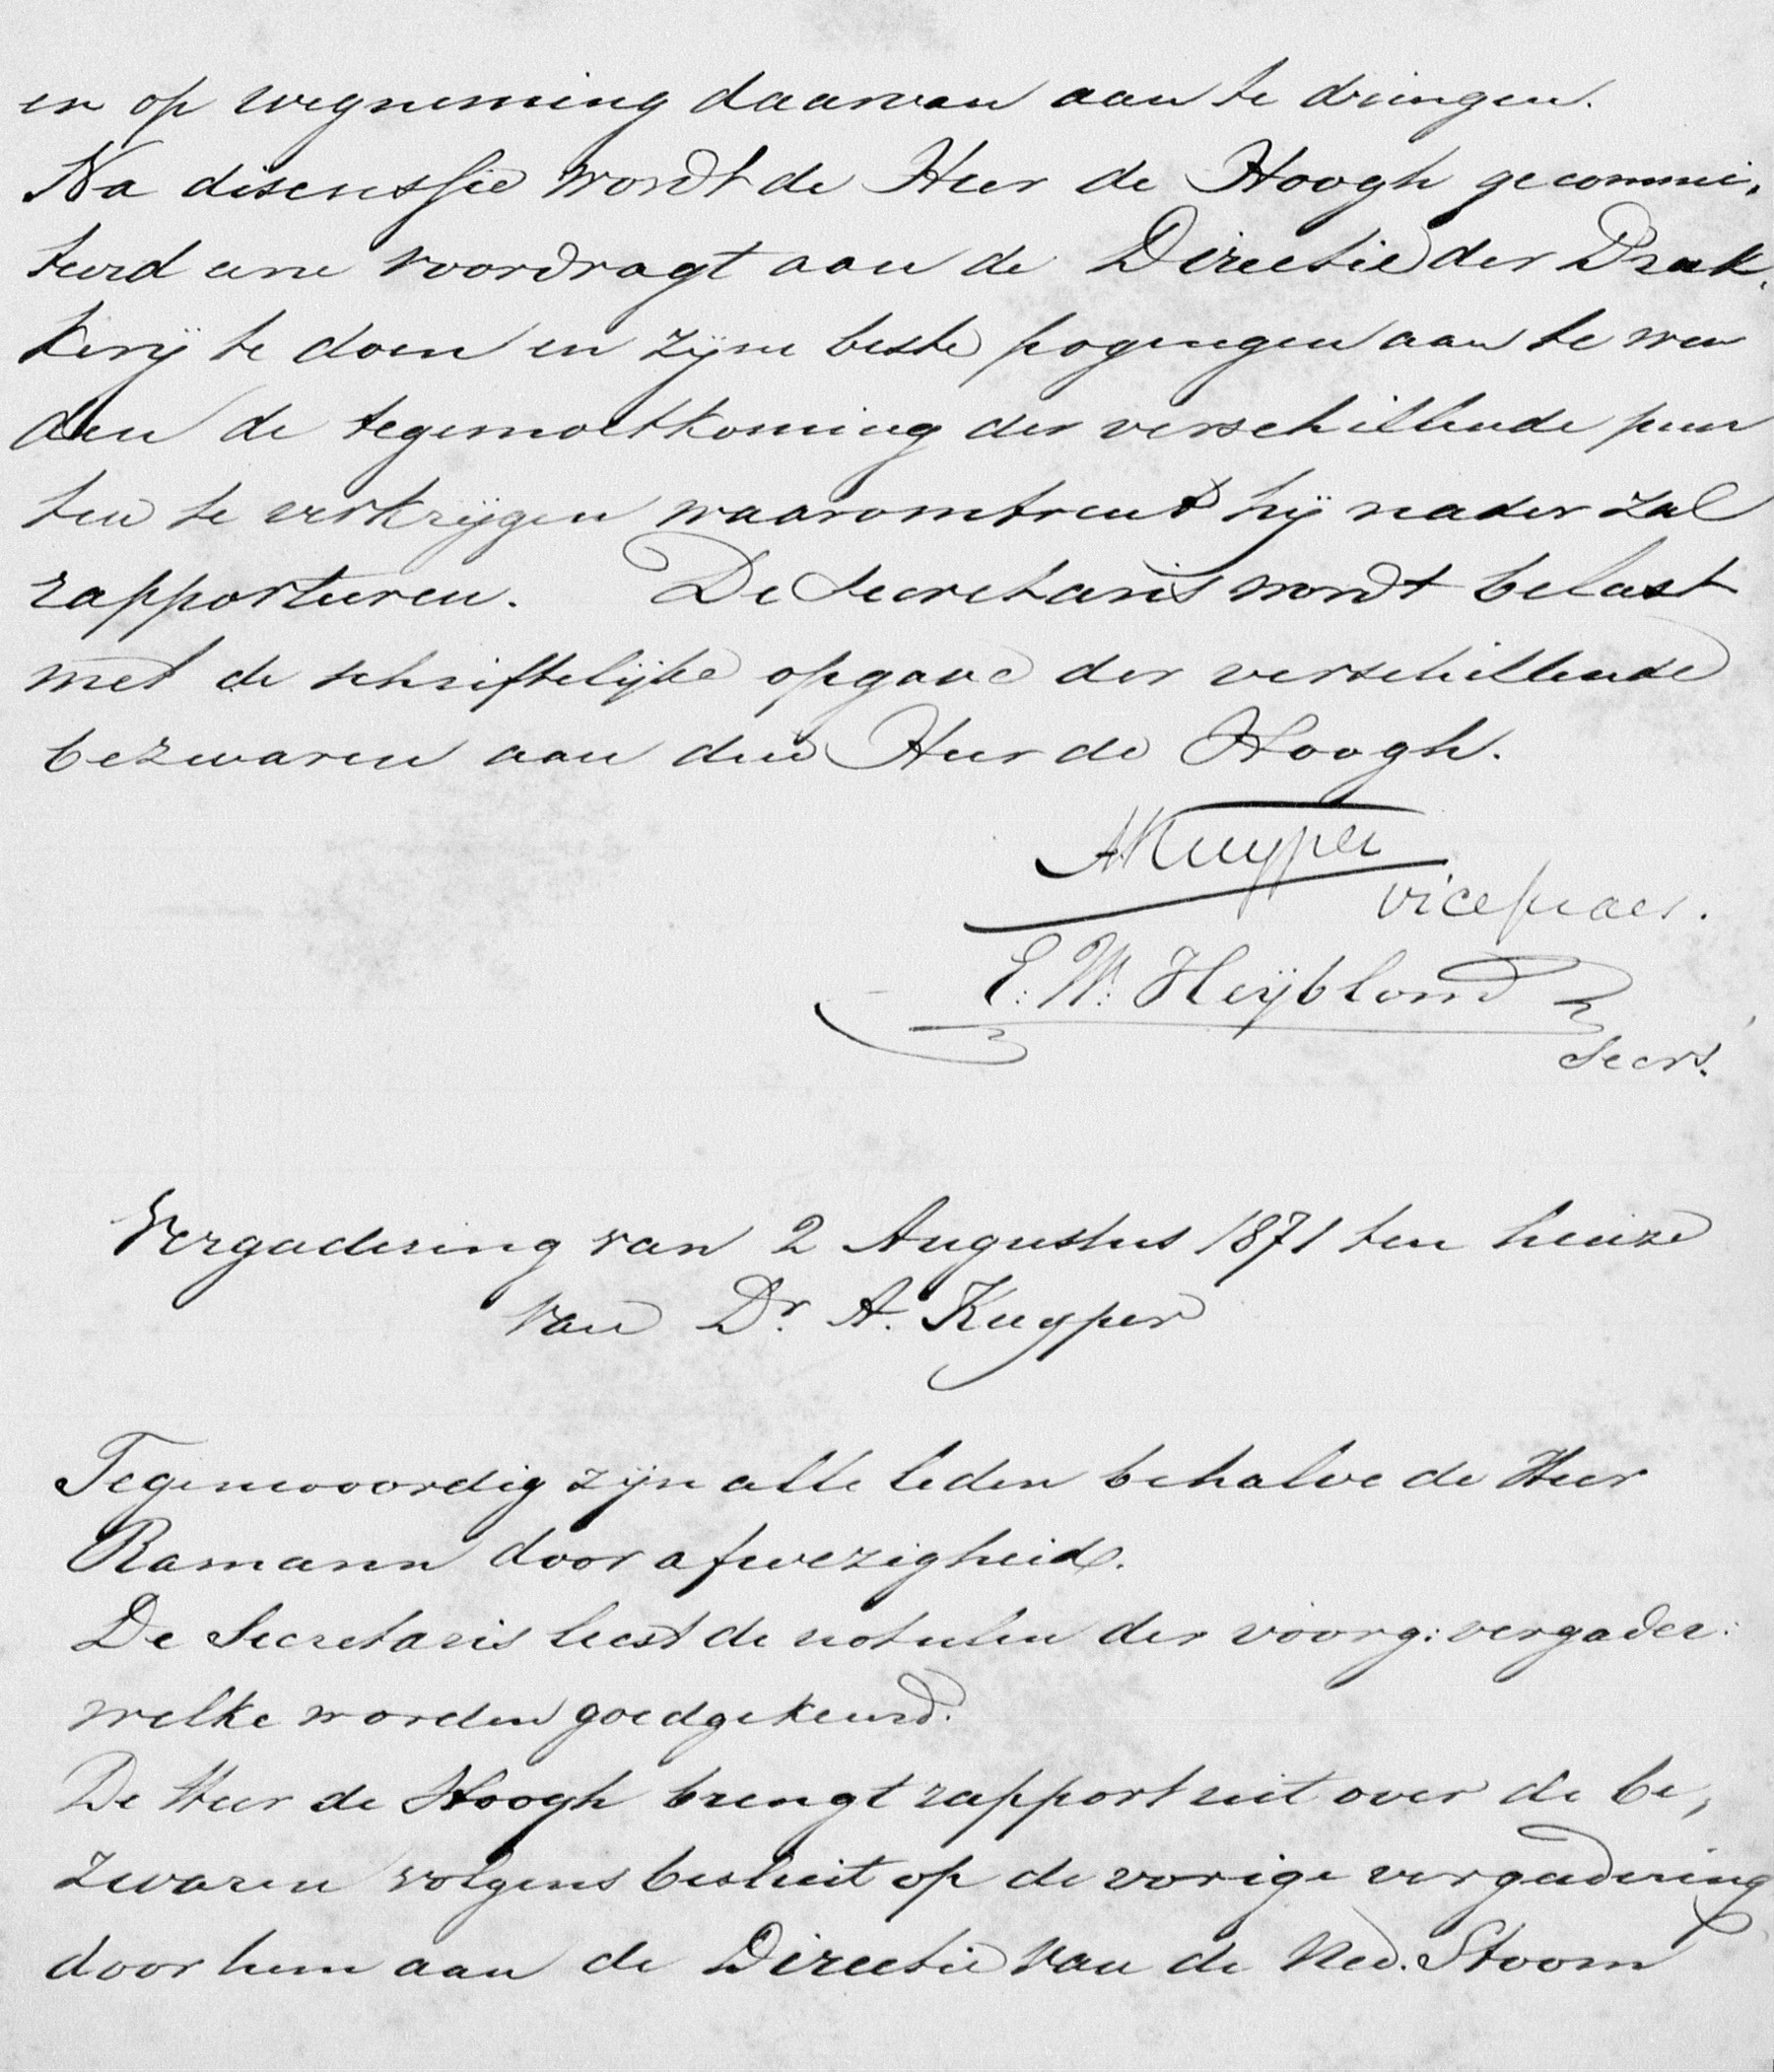 en op wegneming daarvan aan te dringen.
Na discussie wordt de Heer de Hoogh gecommit,
teerd eene voordragt aan de Directie der Druk,
kerij te doen en zijne beste pogingen aan te wen
den de tegemoetkoming der verschillende pun
ten te verkrijgen waaromtrent hij nader zal
rapporteren. De Secretaris wordt belast
met de schriftelijke opgave der verschillende
bezwaren aan den Heer de Hoogh.
AKuyper
vicepraes.
E. W. Heijblom
Secrs.
Vergadering van 2 Augustus 1871 ten huize
van Dr. A. Kuyper
Tegenwoordig zijn alle leden behalve de Heer
Ramann door afwezigheid.
De Secretaris leest de notulen der voorg: vergader:
welke worden goedgekeurd.
De Heer de Hoogh brengt rapport uit over de be,
zwaren volgens besluit op de vorige vergadering
door hem aan de Directie van de Ned. Stoom